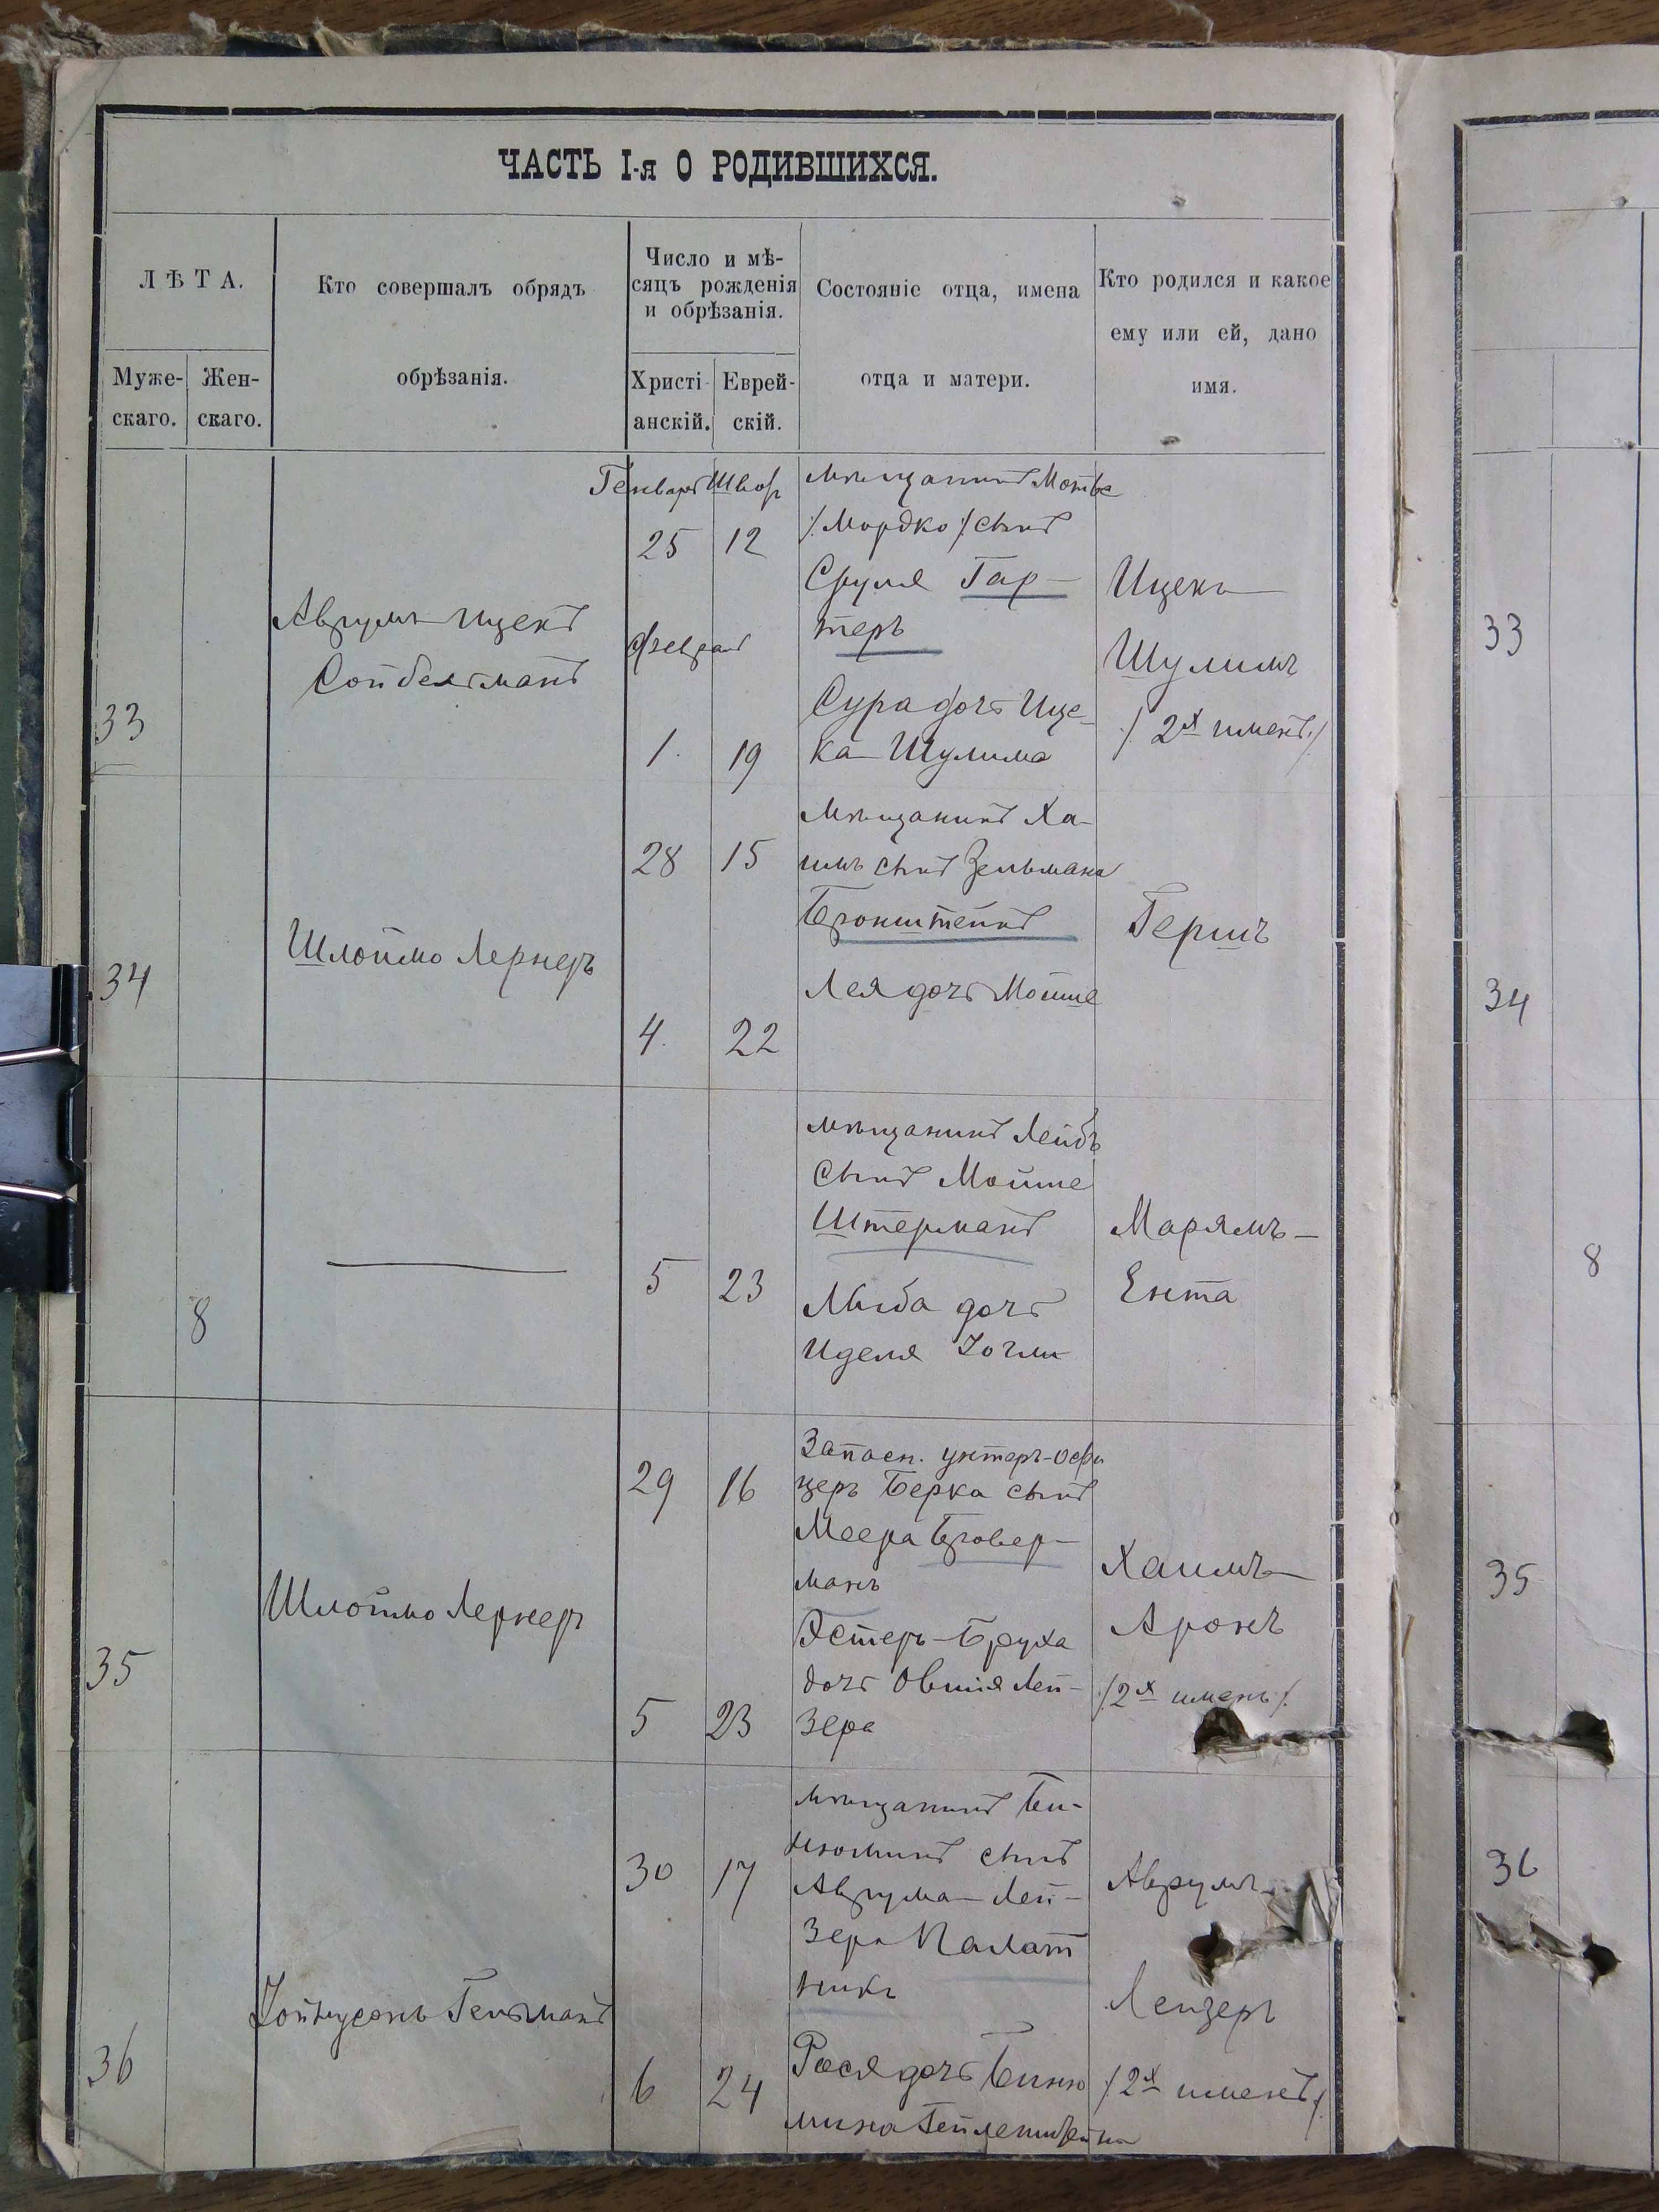 ЧАСТЬ I-я О РОДИВШИХСЯ.
ЛѢТА.
Муже-
скаго.
Жен-
скаго.
Кто совершалъ обрядъ
обрѣзанія.
Число и мѣ-
сяцъ рожденія
и обрѣзанія.
Христі-
анскій.
Еврей-
скій.
Состояніе отца, имена
отца и матери.
Кто родился и какое
ему или ей, дано
имя.
33
Аврумъ-Ицекъ
Сойбельманъ
Генваря
25
Февраля
1.
Швор
12
19
мѣщанинъ Мотье
/:Мордко:/ сынъ
Сруля Гар-
теръ
Сура дочь Ице-
ка-Шулима
Ицекъ-
Шулимъ
/: 2х именъ:/
33
34
Шлоймо Лернеръ
28
4.
15
22
мѣщанинъ Ха-
имъ сынъ Зельмана
Бронштейнъ
Лея дочь Мошше
Гершъ
34
8
5
23
мѣщанинъ Лейбъ
сынъ Мойше
Штерманъ
дочь
Иделя
Марямъ-
Ента
8
35
Шлоймо Лернеръ
29
5
16
23
Запасн. унтеръ-офи
церъ Берка сынъ
Меера Бровер-
манъ
Эстеръ-Бруха
дочь Овшія Лей-
зера
Хаимъ-
Аронъ
/:2х именъ:/
35
36
Гельманъ
30
6
17
24
мѣщанинъ Бен-
июминъ сынъ
Аврума-Лей-
зера Палат
никъ
Рося дочь Биню
мина
Аврумъ-
Лейзеръ
/:2х именъ:/
36